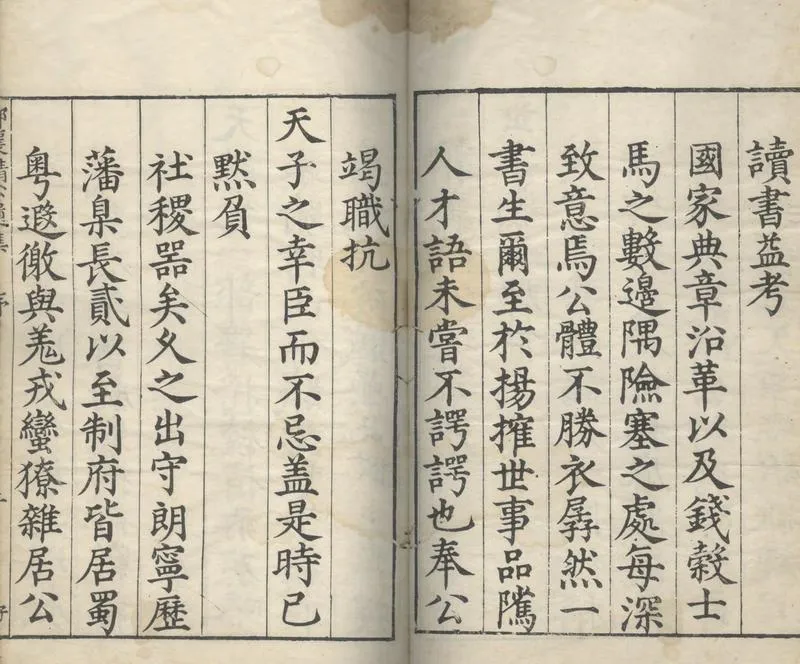 讀書益考
國家典章沿革以及錢穀士
馬之數邊隅險塞之處每深
致意焉公體不勝衣孱然一
書生爾至於揚搉世事品隲
人才語未嘗不諤諤也奉公
竭職抗
天子之幸臣而不忌盖是時已
黙負
社稷器矣久之出守朗寧歷
藩臬長貳以至制府皆居蜀
粤遐徼與羗戎蠻獠雜居公